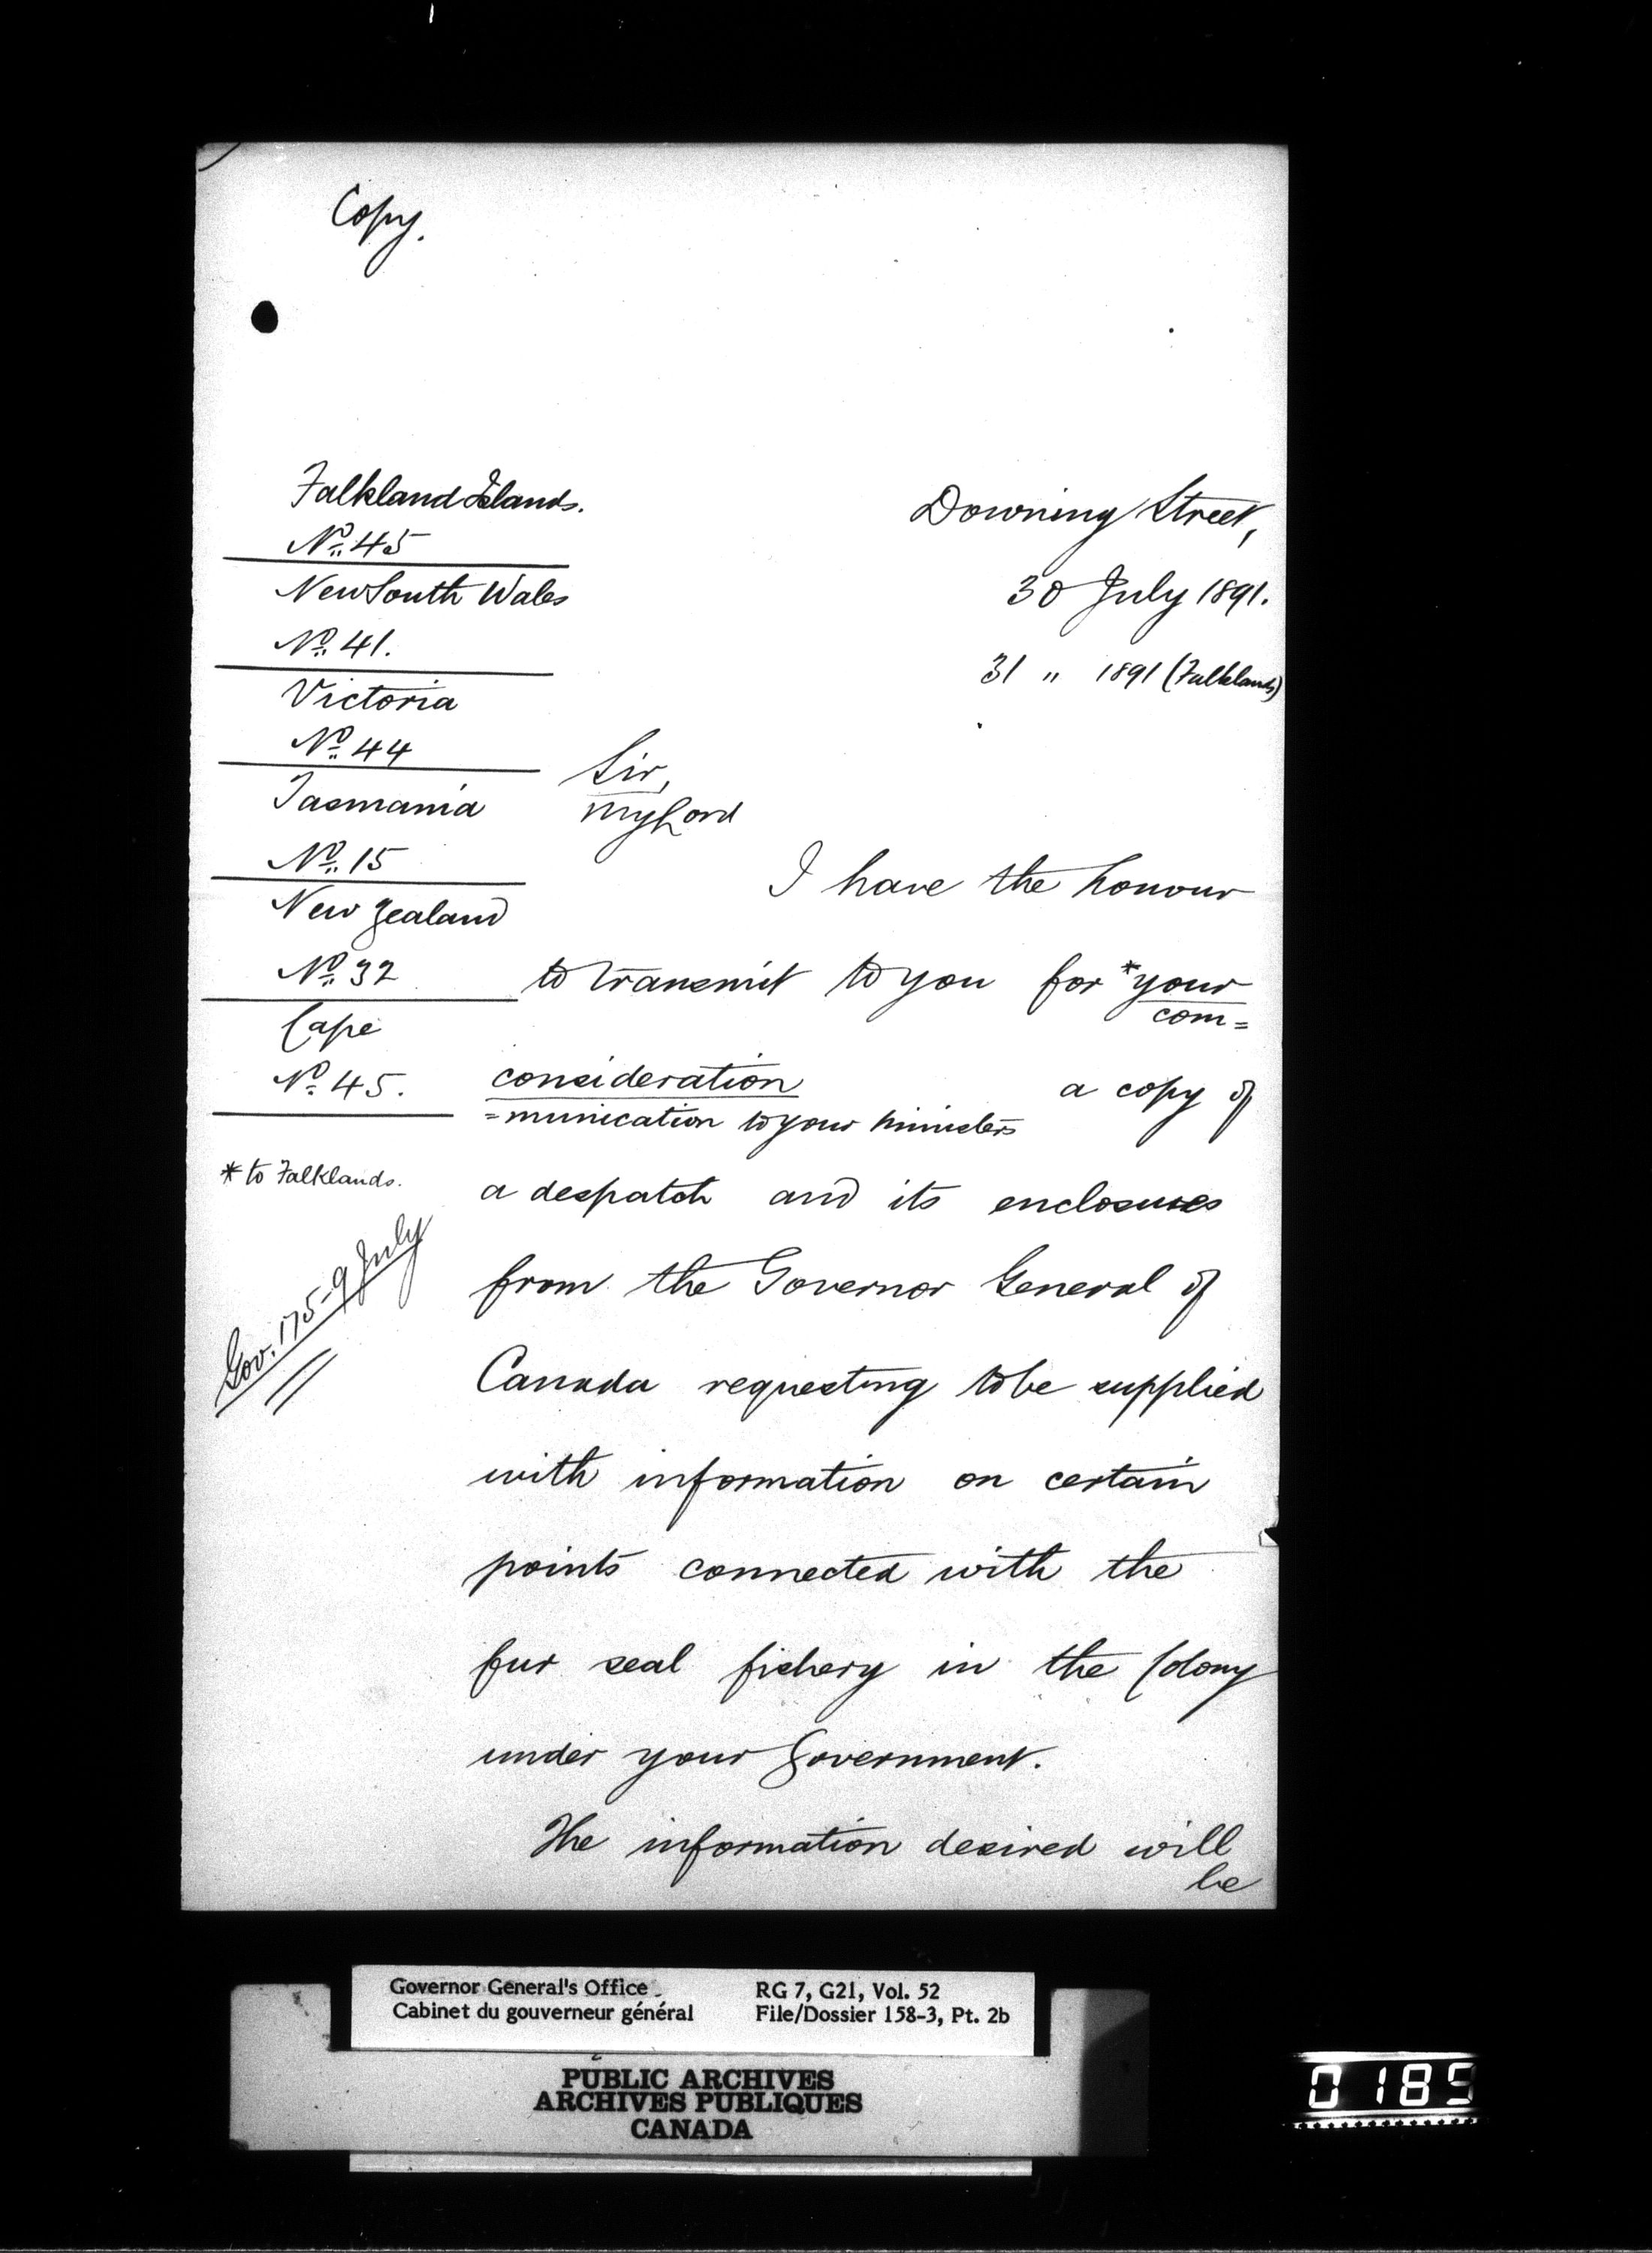 Copy.
Falkland Islands.
No. 45
New South Wales
No. 41.
Victoria
No. 44
Tasmania
No. 15
New Zealand
No. 32
Cape
No. 45.
* to Falklands.
Gov. 175-9 July
Downing Street,
30 July 1891.
31 " 1891 (Falklands)
Sir,
My Lord
I have the honour
to transmit to you for *your
com=
consideration a copy of
=munication to your ministers
a despatch and its enclosures
from the Governor General of
Canada requesting to be supplied
with information on certain
points connected with the
fur seal fishery in the Colony
under your Government.
The information desired will
be
Governor General's Office
Cabinet du gouverneur général
RG 7, G21, Vol. 52
File/Dossier 158-3, Pt. 2b
PUBLIC ARCHIVES
ARCHIVES PUBLIQUES
CANADA
0185